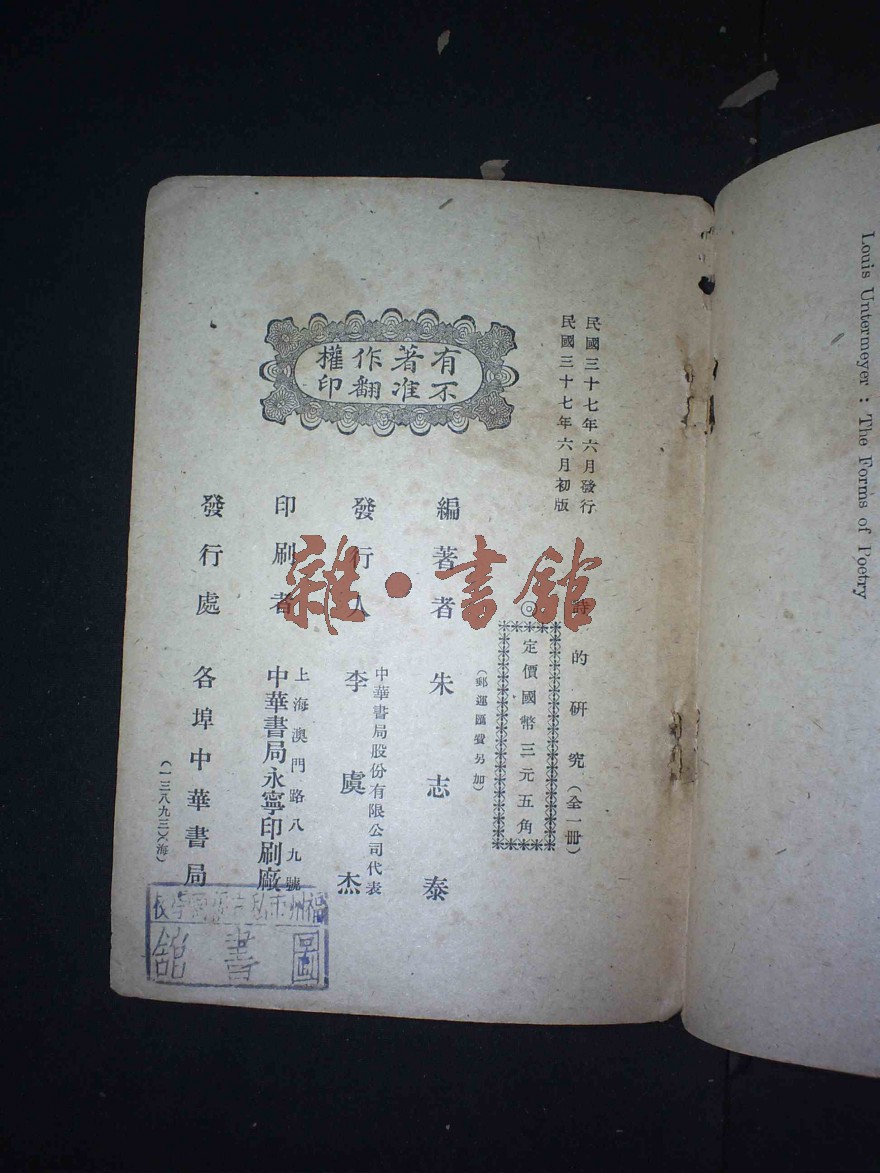 民國三十七年六月發行
民國三十七年六月初版
詩的研究（全一冊）
◎定價國幣三元五角
（郵運匯費另加）
有著作權
不准翻印
編著者 朱志泰
發行人 李虞杰
中華書局股份有限公司代表
印刷者 中華書局永寧印刷廠
上海澳門路八九號
發行處 各埠中華書局
（一三八九三）（海）
圖書館
雜·書館
Louis Untermeyer : The Forms of Poetry